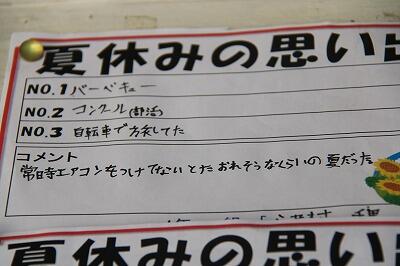 夏休みの思い出
NO.1 バーベキュー
NO.2 コンクール(部活)
NO.3 自転車で
コメント
常時エアコンをつけてないとたおれそうなくらいの夏だった
夏休みの思い出